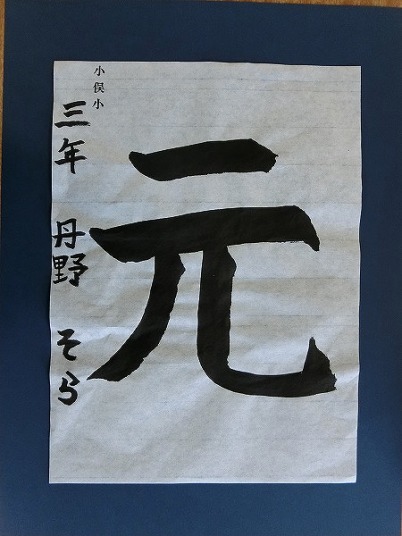 元
小俣小
三年 丹野 そら